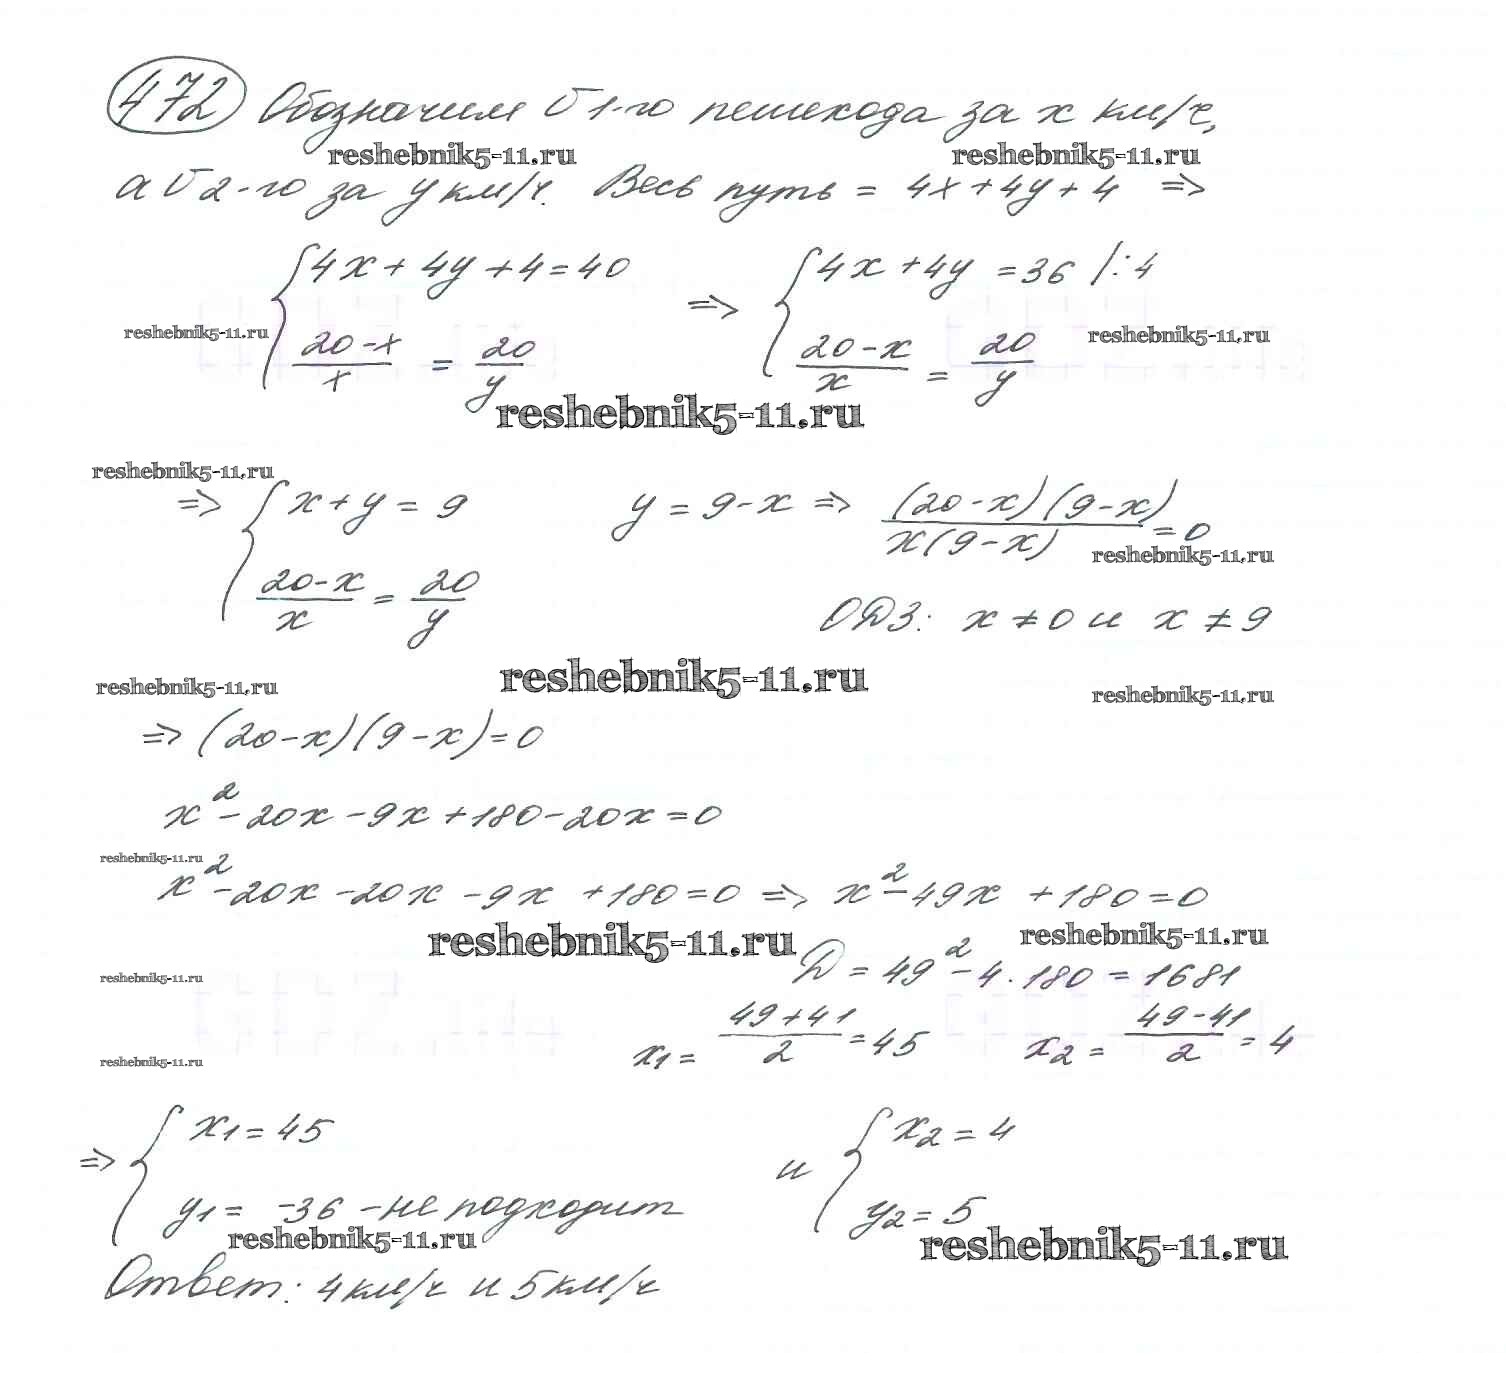 472 Обозначим V 1-го пешехода за x км/ч,
reshebnik5-11.ru reshebnik5-11.ru
а V 2-го за y км/ч. Весь путь = 4x + 4y + 4 =>
{ 4x + 4y + 4 = 40 => { 4x + 4y = 36 /:4
reshebnik5-11.ru reshebnik5-11.ru
(20-x)/x = 20/y (20-x)/x = 20/y
reshebnik5-11.ru
reshebnik5-11.ru
=> { x + y = 9 y = 9 - x => (20-x)(9-x)/x(9-x) = 0
reshebnik5-11.ru
(20-x)/x = 20/y ОДЗ: x ≠ 0 и x ≠ 9
reshebnik5-11.ru reshebnik5-11.ru reshebnik5-11.ru
=> (20-x)(9-x) = 0
x² - 20x - 9x + 180 - 20x = 0
reshebnik5-11.ru
x² - 20x - 20x - 9x + 180 = 0 => x² - 49x + 180 = 0
reshebnik5-11.ru reshebnik5-11.ru
reshebnik5-11.ru
D = 49² - 4·180 = 1681
reshebnik5-11.ru
x1 = (49+41)/2 = 45 x2 = (49-41)/2 = 4
=> { x1 = 45 и { x2 = 4
y1 = -36 - не подходит y2 = 5
reshebnik5-11.ru reshebnik5-11.ru
Ответ: 4 км/ч и 5 км/ч